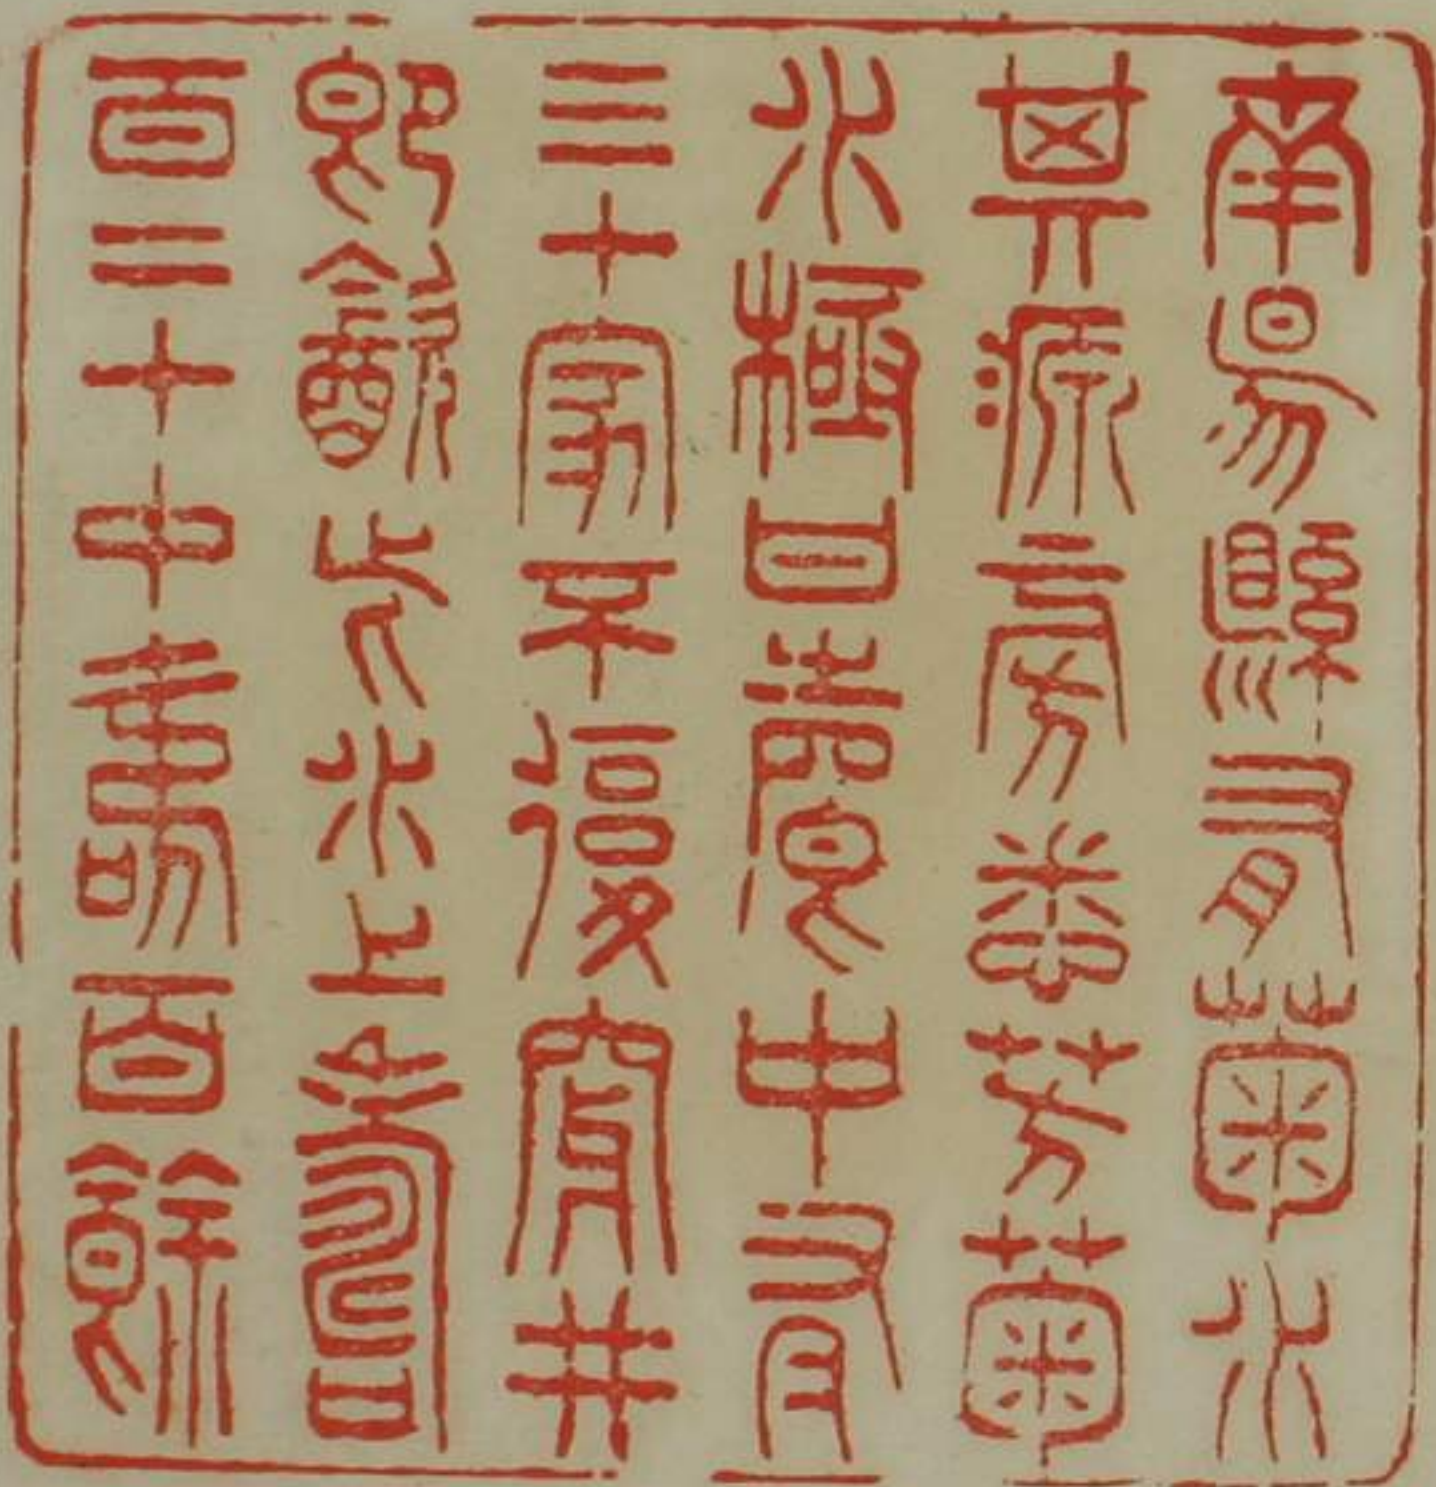 南昜縣有菊水
其源旁悉芳菊
水極甘馨中有
三十家不復穿井
即飲此水上壽
百二十中壽百餘